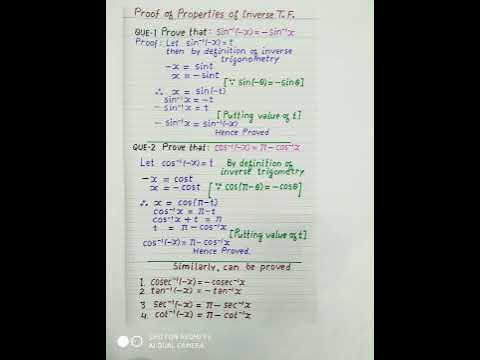 Proof of Properties of Inverse T.F.
QUE-1 Prove that: sin⁻¹(-x) = -sin⁻¹x
Proof: Let sin⁻¹(-x) = t
then by definition of inverse
trigonometry
-x = sint
x = -sint
[∵ sin(-θ) = -sinθ]
∴ x = sin(-t)
sin⁻¹x = -t
- sin⁻¹x = t
[Putting value of t]
- sin⁻¹x = sin⁻¹(-x)
Hence Proved
QUE-2 Prove that: cos⁻¹(-x) = π - cos⁻¹x
Let cos⁻¹(-x) = t By definition of
inverse trigometry
-x = cost
x = -cost [∵ cos(π-θ) = -cosθ]
∴ x = cos(π-t)
cos⁻¹x = π-t
cos⁻¹x + t = π
[Putting value of t]
t = π - cos⁻¹x
cos⁻¹(-x) = π - cos⁻¹x
Hence Proved.
Similarly, can be proved
1. cosec⁻¹(-x) = - cosec⁻¹x
2. tan⁻¹(-x) = - tan⁻¹x
3. sec⁻¹(-x) = π - sec⁻¹x
4. cot⁻¹(-x) = π - cot⁻¹x
SHOT ON REDMI Y2
AI DUAL CAMERA